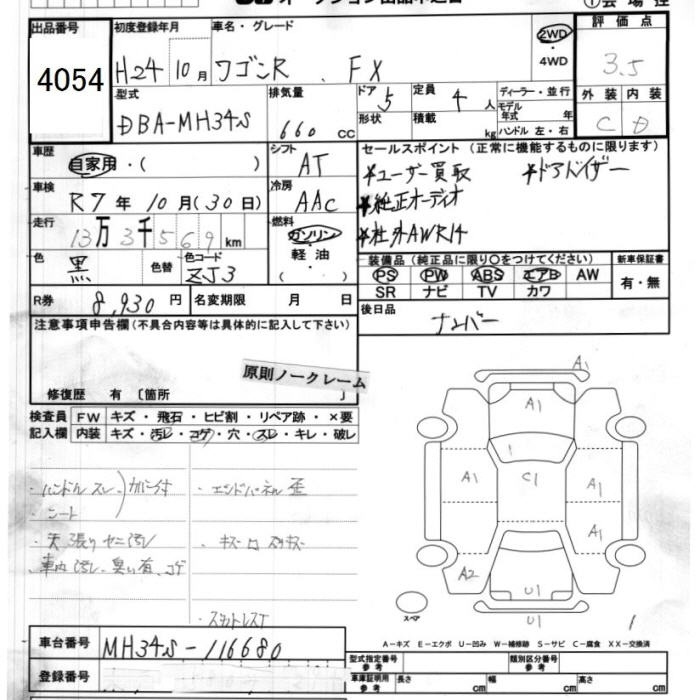 出品番号
4054
初度登録年月
H24 10月
車名・グレード
ワゴンR FX
2WD
・4WD
評価点
3.5
外装 内装
C D
型式
DBA-MH34S
排気量
660 cc
ドア
5
形状
定員
4 人
積載
kg
ディーラー・並行
モデル年式 年
ハンドル 左・右
車歴
自家用・( )
シフト
AT
セールスポイント(正常に機能するものに限ります)
*ユーザー買取 *ドアバイザー
*純正オーディオ
*社外AWR14
車検
R7年10月(30日)
冷房
AAC
走行
13万3千569km
燃料
ガソリン・
軽油
( )
色
黒
色替
色コード
ZJ3
装備品(純正品に限り○をつけてください)
PS PW ABS エアB AW
SR ナビ TV カワ
新車保証書
有・無
R券
8,930円
名変期限 月 日
後日品
ナンバー
注意事項申告欄(不具合内容等は具体的に記入して下さい)
原則ノークレーム
修復歴 有〔箇所 〕
検査員記入欄
FW キズ・飛石・ヒビ割・リペア跡・×要
内装 キズ・汚レ・コゲ・穴・スレ・キレ・破レ
・ハンドルスレ
・シート
・エンドパネル歪
・天張りヤニ汚レ
・車内汚レ、臭い有、コゲ
A1
A1
1
A1
C1
A1
A1
A2
U1
U1
スペア
1
A-キズ E-エクボ U-凹み W-補修跡 S-サビ C-腐食 XX-交換済
車台番号
MH34S-116680
登録番号
型式指定番号
参考
類別区分番号
参考
車庫証明用
参考
長さ cm
幅 cm
高さ cm